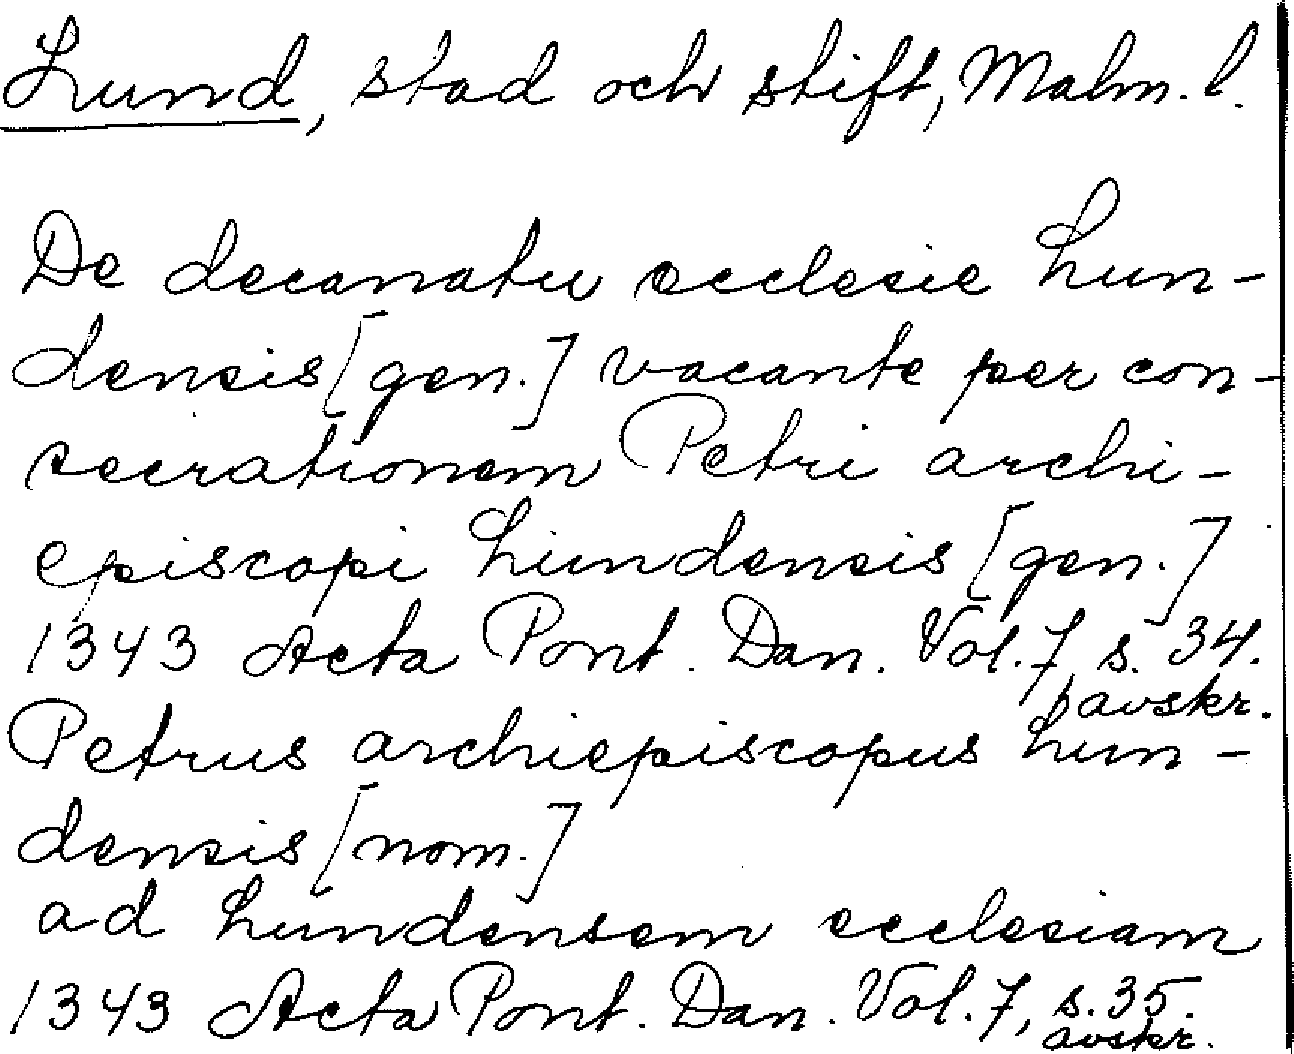 Lund, stad och stift, Malm. l.
De decanatu ecclesie Lun-
densis [gen.] vacante per con-
secrationem Petri archi-
episcopi Lundensis [gen.]
1343 Acta Pont. Dan. Vol. 7, s. 34.
avskr.
Petrus archiepiscopus Lun-
densis [nom.]
ad Lundensem ecclesiam
1343 Acta Pont. Dan. Vol. 7, s. 35.
avskr.